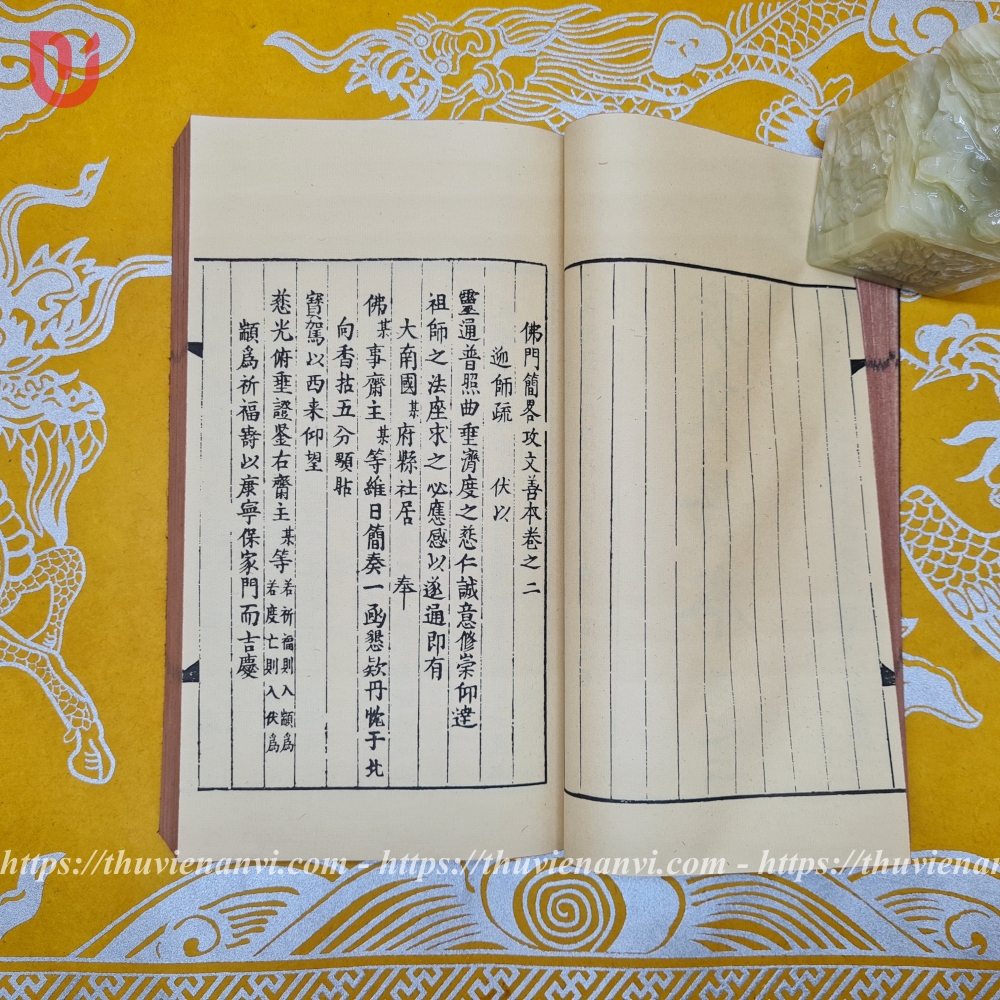 佛門簡畧攻文善本卷之二
迎師疏 伏以
靈通普照曲垂濟度之慈仁誠意修崇仰達
祖師之法座求之必應感以遂通即有
大南國某府縣社居 奉
佛某事齋主某等維日簡奏一函懇欵丹忱于此
向香拈五分顆貼
寶駕以西来仰望
慈光俯垂證鑒右齋主某等若祈福則入顓爲若度亡則入伏爲
顓爲祈福壽以康寧保家門而吉慶
https://thuvienanvi.com - https://thuvienanvi.com - https://thuvienanvi